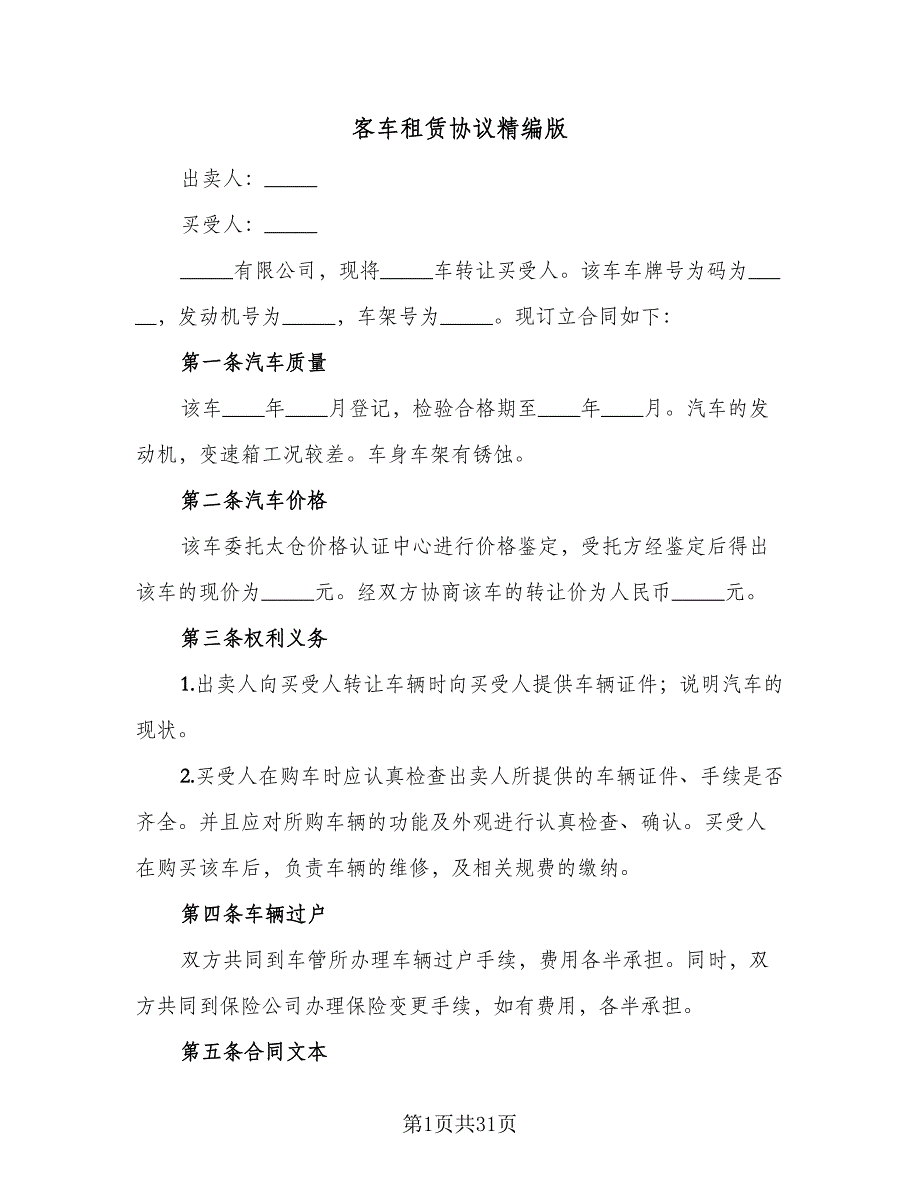 客车租赁协议精编版
出卖人：_____
买受人：_____
_____有限公司，现将_____车转让买受人。该车车牌号为码为___
__，发动机号为_____，车架号为_____。现订立合同如下：
第一条汽车质量
该车____年____月登记，检验合格期至____年____月。汽车的发
动机，变速箱工况较差。车身车架有锈蚀。
第二条汽车价格
该车委托太仓价格认证中心进行价格鉴定，受托方经鉴定后得出
该车的现价为_____元。经双方协商该车的转让价为人民币_____元。
第三条权利义务
1.出卖人向买受人转让车辆时向买受人提供车辆证件；说明汽车的
现状。
2.买受人在购车时应认真检查出卖人所提供的车辆证件、手续是否
齐全。并且应对所购车辆的功能及外观进行认真检查、确认。买受人
在购买该车后，负责车辆的维修，及相关规费的缴纳。
第四条车辆过户
双方共同到车管所办理车辆过户手续，费用各半承担。同时，双
方共同到保险公司办理保险变更手续，如有费用，各半承担。
第五条合同文本
第1页共31页